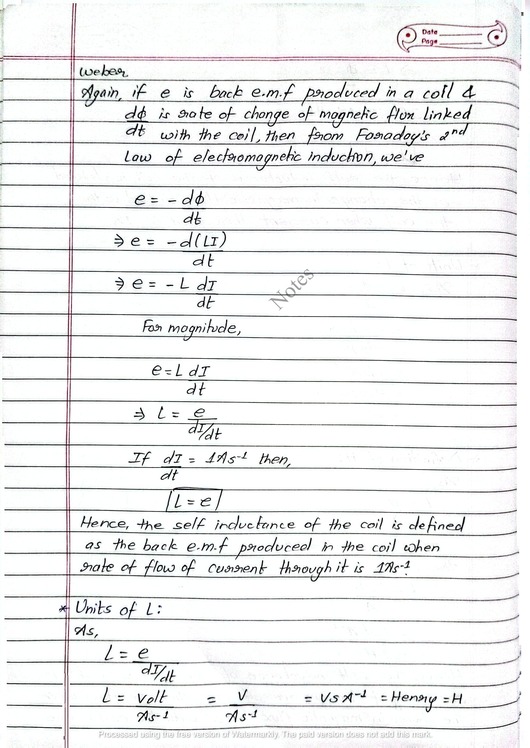 Date
Page
weber
Again, if e is back e.m.f produced in a coil &
dφ/dt is rate of change of magnetic flux linked
with the coil, then from Faraday's 2nd
Law of electromagnetic induction, we've
e = - dφ/dt
⇒ e = - d(LI)/dt
⇒ e = - L dI/dt
Notes
For magnitude,
e = L dI/dt
⇒ L = e/dI/dt
If dI/dt = 1As⁻¹ then,
L = e
Hence, the self inductance of the coil is defined
as the back e.m.f produced in the coil when
rate of flow of current through it is 1As⁻¹.
* Units of L:
As,
L = e/dI/dt
L = volt/As⁻¹ = V/As⁻¹ = VsA⁻¹ = Henry = H
Processed using the free version of Watermarkly. The paid version does not add this mark.